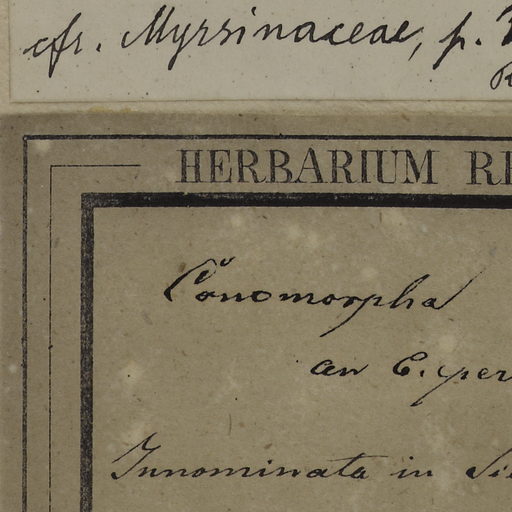 cfr. Myrsinaceae, p.
HERBARIUM
Conomorpha
an C. per
Innominata in